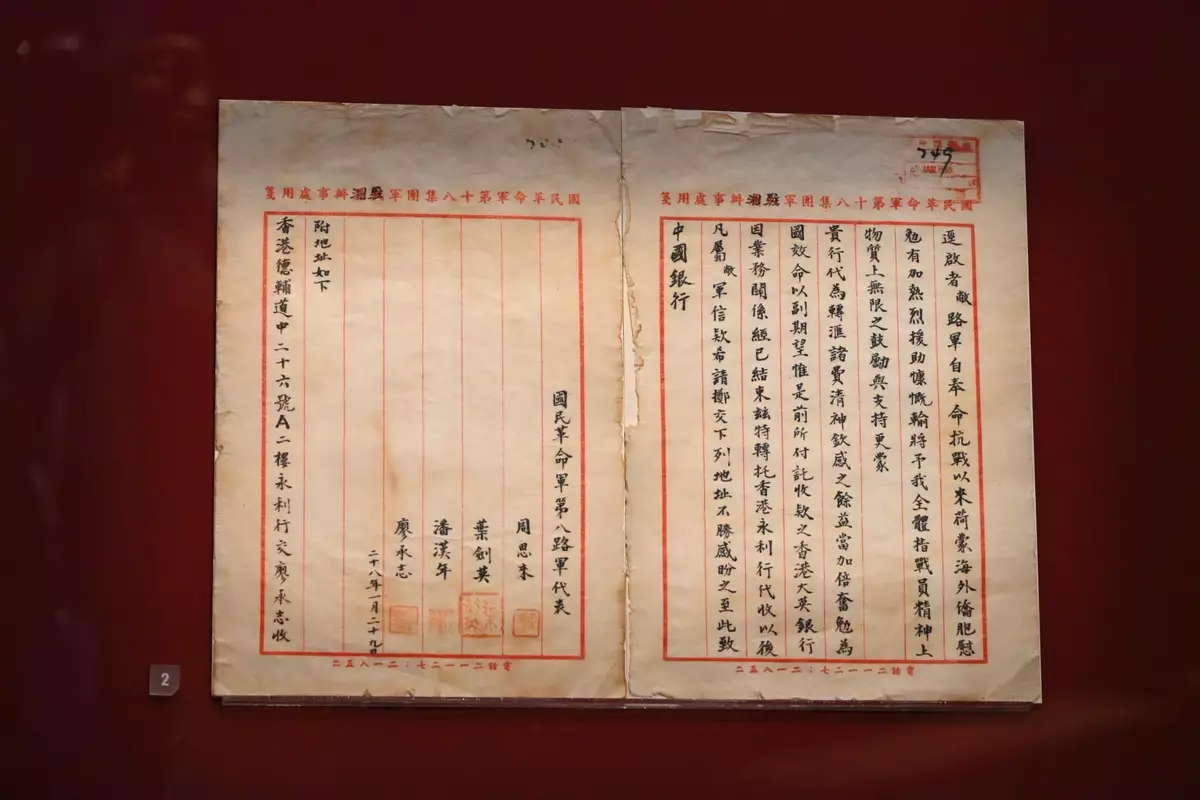 國民革命軍第十八集團軍駐湘辦事處用箋
逕啟者敝路軍自奉命抗戰以來荷蒙海外僑胞慰
勉有加熱烈援助慷慨輸將予我全體指戰員精神上
物質上無限之鼓勵與支持更蒙
貴行代為轉滙諸費清神欽感之餘益當加倍奮勉為
國效命以副期望惟是前所付託收款之香港大英銀行
因業務關係經已結束玆特轉托香港永利行代收以後
凡屬敝軍信欵希請擲交下列地址不勝感盼之至此致
中國銀行
電話二一一二七：二一八五二
國民革命軍第十八集團軍駐湘辦事處用箋
國民革命軍第八路軍代表
周恩來
葉劍英
潘漢年
廖承志
二十八年一月二十九日
附地址如下
香港德輔道中二十六號A二樓永利行交廖承志收
電話二一一二七：二一八五二
2